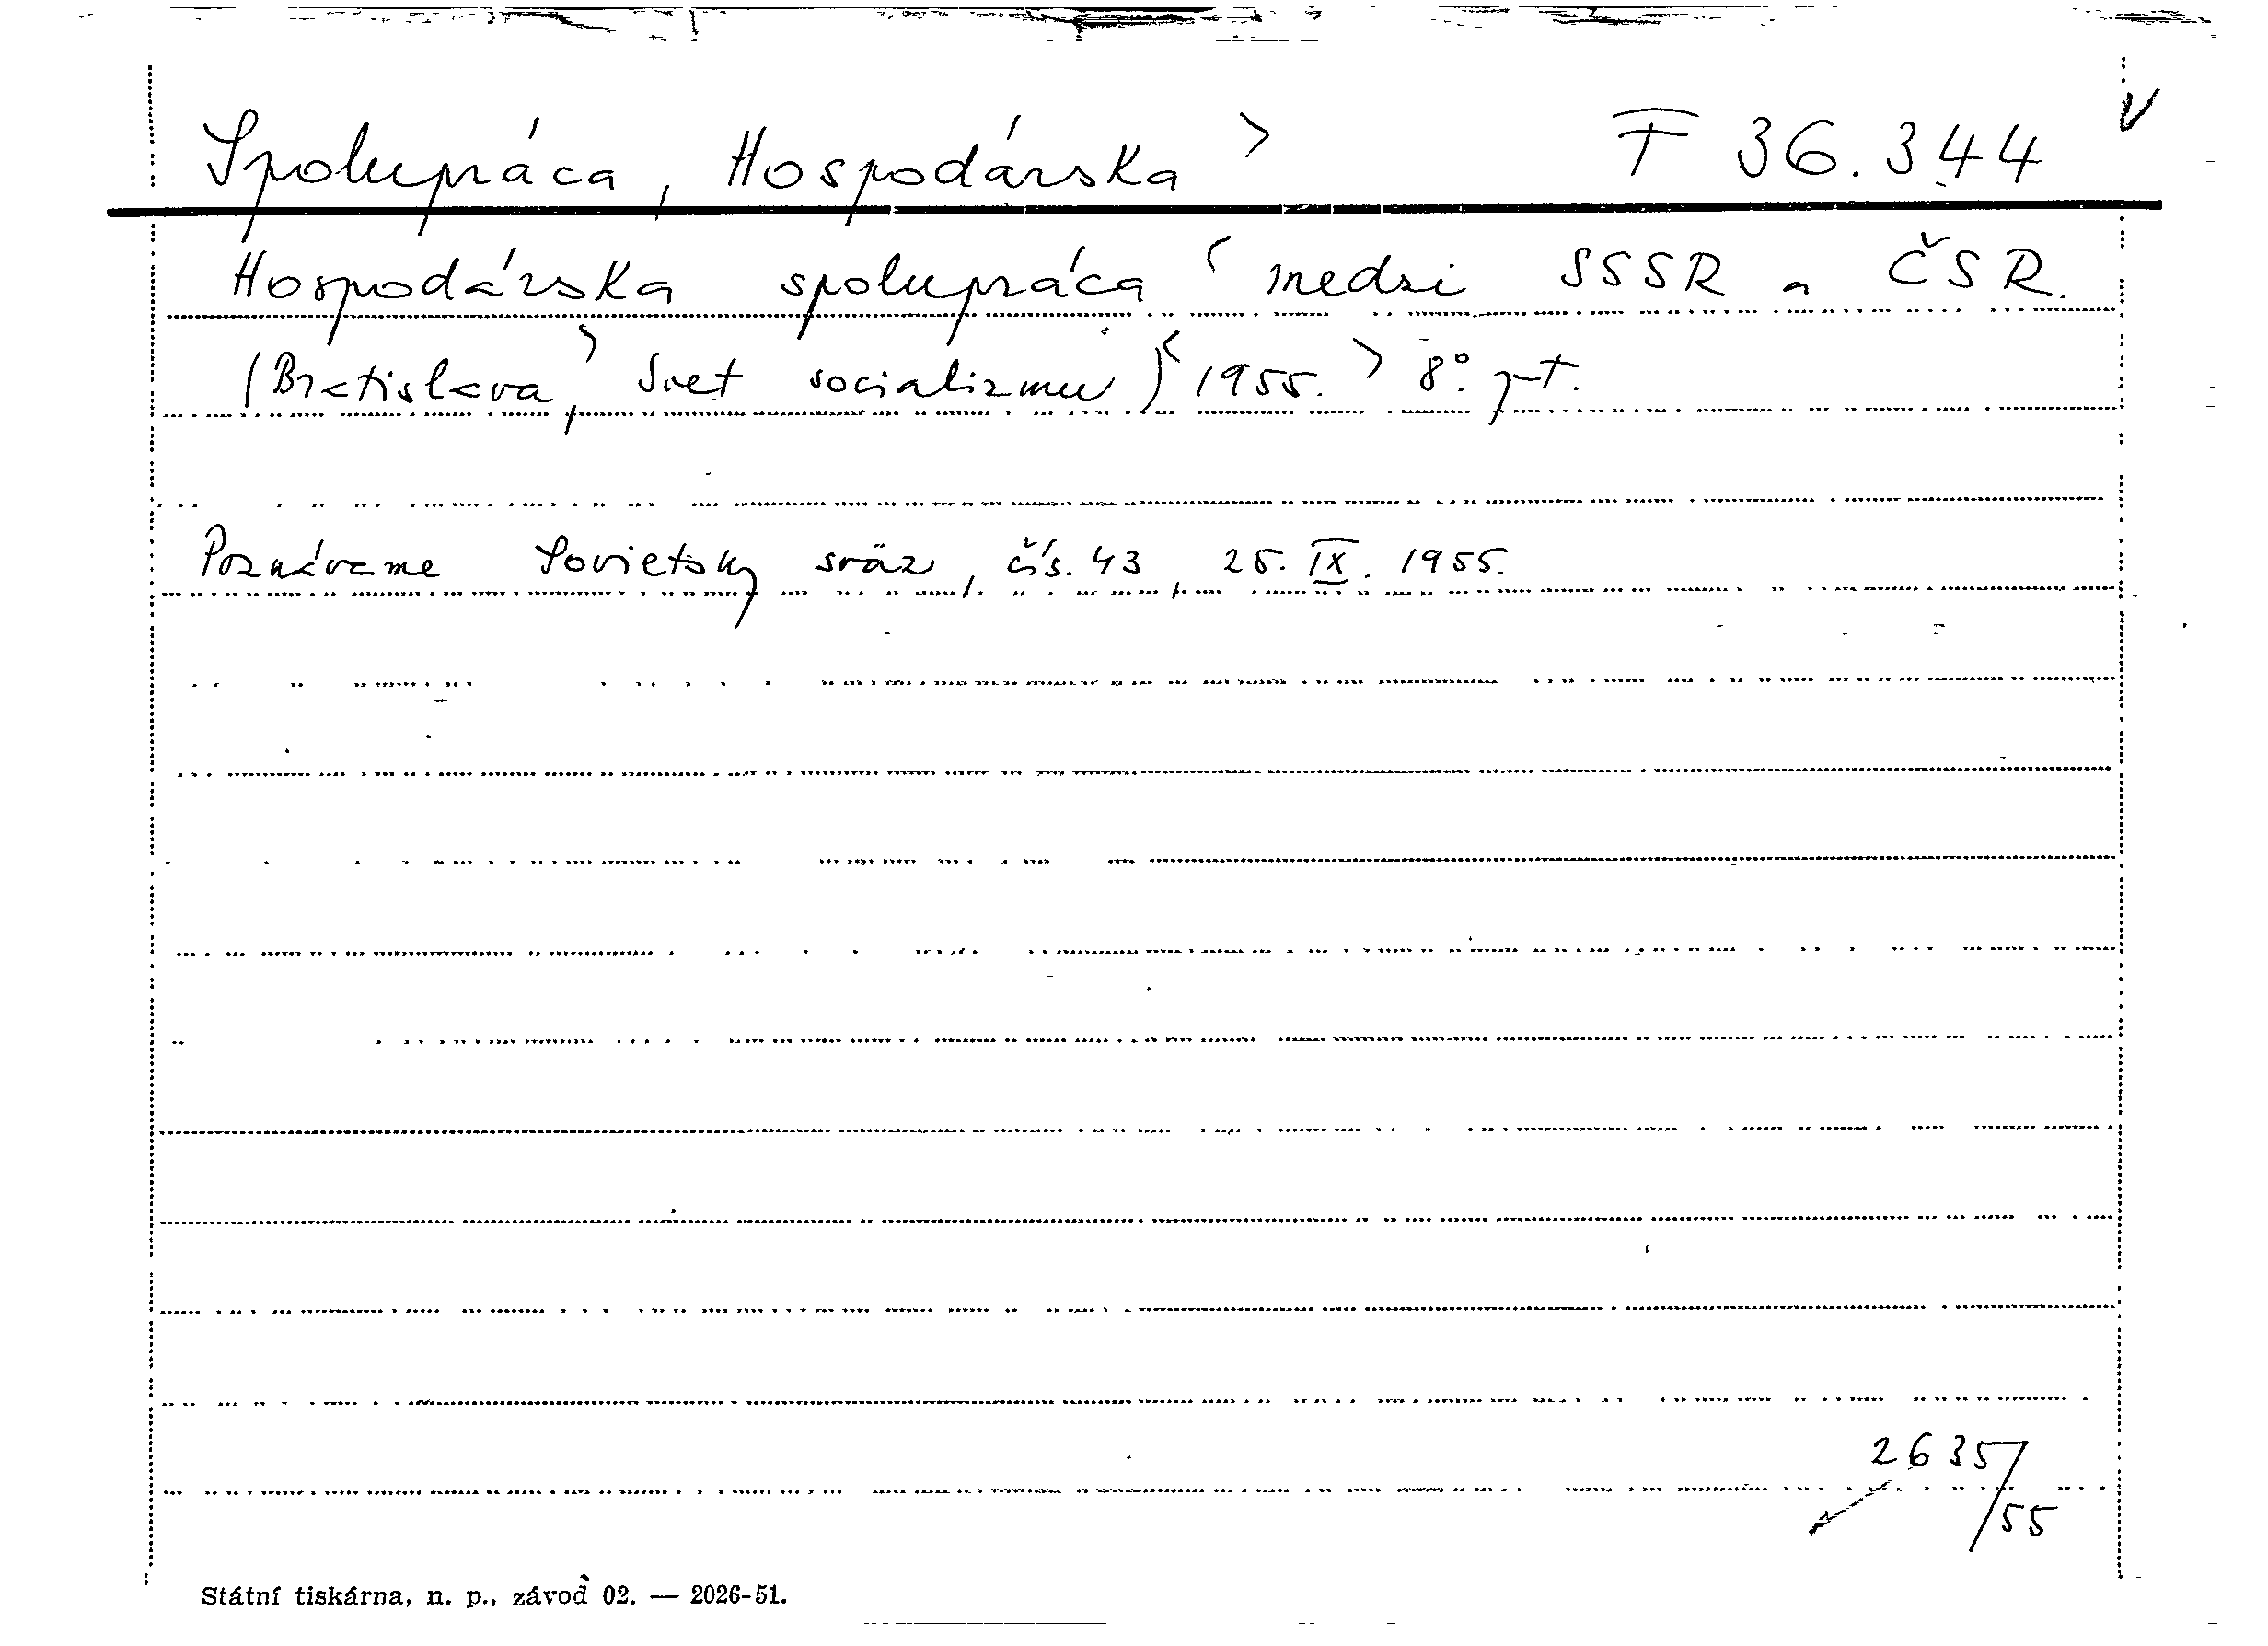 Spolupráca, Hospodárska > F 36.344 V
Hospodárska spolupráca < medzi SSSR a ČSR.
(Bratislava, > Svet socializmu) < 1955. > 8°. p.t.
Poznávame Sovietsky sväz, čís. 43, 25. IX. 1955.
2635/55
Státní tiskárna, n. p., závod 02. — 2026-51.